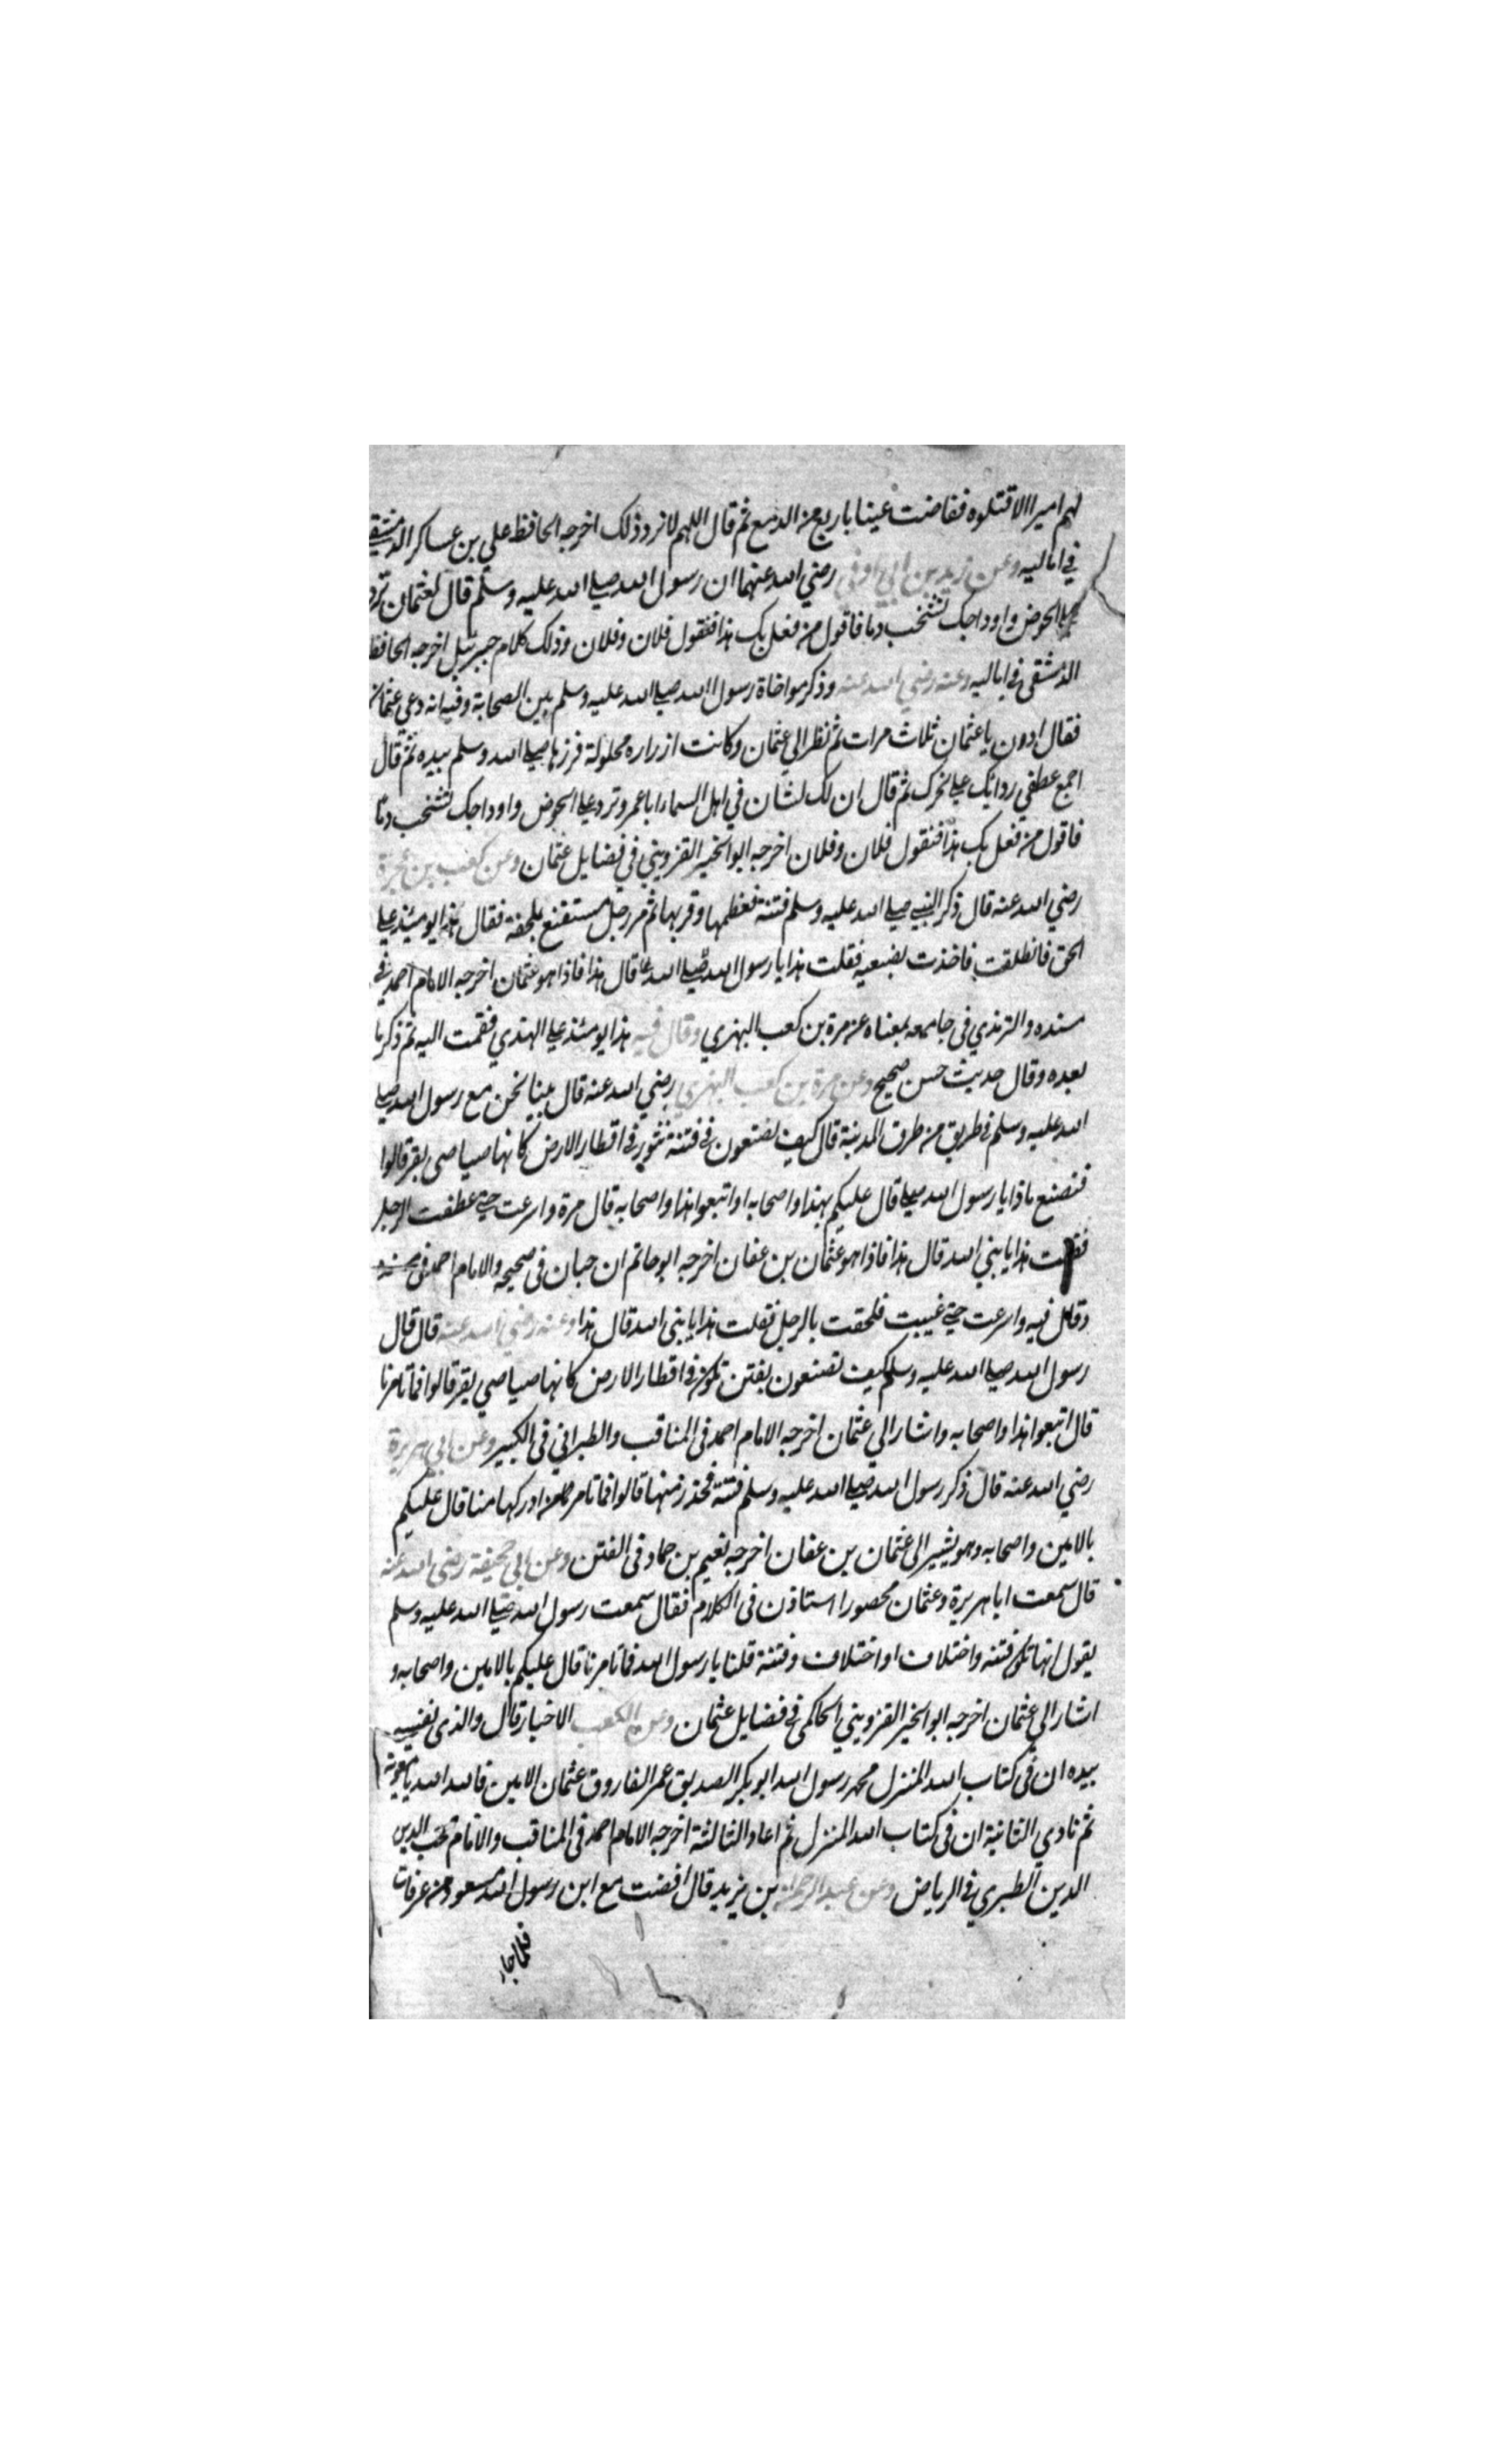 لهم اميرا الا قتلوه ففاضت عينا باربع من الدمع ثم قال اللهم لا نرد ذلك اخرجه الحافظ علي بن عساكر الدمشقي
في اماليه وعن زيد بن ابي اوفي رضي الله عنهما ان رسول الله صلي الله عليه وسلم قال لعثمان ترد
علي الحوض واوداجك تشخب دما فاقول من فعل بك هذا فتقول فلان وفلان وذلك كلام جبرئيل اخرجه الحافظ
الدمشقي في اماليه وعنه رضي الله عنه وذكر مواخاة رسول الله صلي الله عليه وسلم بين الصحابة وفيه انه دعي عثمان
فقال ادون يا عثمان ثلاث مرات ثم نظر الي عثمان وكانت ازراره محلولة فزرها صلي الله وسلم بيده ثم قال
اجمع عطفي ردائك علي نحرك ثم قال ان لك لشان في اهل السماء ابا عمرو ترد علي الحوض واوداجك تشخب دما
فاقول من فعل بك هذا فتقول فلان وفلان اخرجه ابو الخير القزويني في فضايل عثمان وعن كعب بن عجرة
رضي الله عنه قال ذكر النبي صلي الله عليه وسلم فتنة فعظمها وقربها ثم مر رجل مستقنع بملحفة فقال هذا يومئذ علي
الحق فانطلقت فاخذت بضبعيه فقلت هذا يا رسول الله صلي الله قال هذا فاذا هو عثمان اخرجه الامام احمد في
مسنده والترمذي في جامعه بمعناه عن مرة بن كعب البهزي وقال فيه هذا يومئذ علي الهدي فقمت اليه ثم ذكر ما
بعده وقال حديث حسن صحيح وعن مرة بن كعب البهزي رضي الله عنه قال بينا نحن مع رسول الله صلي
الله عليه وسلم في طريق من طرق المدينة قال كيف تصنعون في فتنة تثور في اقطار الارض كانها صياصي بقر قالوا
فنصنع ماذا يا رسول الله صلي قال عليكم بهذا واصحابه او اتبعوا هذا واصحابه قال مرة واسرعت حتي عطفت الرجل
فقلت هذا يا نبي الله قال هذا فاذا هو عثمان بن عفان اخرجه ابو حاتم ان حبان في صحيحه والامام احمد في مسنده
وقال فيه واسرعت حتي غيبت فلحقت بالرجل فقلت هذا يا نبي الله قال هذا وعنه رضي الله عنه قال قال
رسول الله صلي الله عليه وسلم كيف تصنعون بفتن تكون في اقطار الارض كانها صياصي بقر قالوا فما تامرنا
قال اتبعوا هذا واصحابه واشار الي عثمان اخرجه الامام احمد في المناقب والطبراني في الكبير وعن ابي هريرة
رضي الله عنه قال ذكر رسول الله صلي الله عليه وسلم فتنة فحذر منها قالوا فما تامر من ادركها منا قال عليكم
بالامين واصحابه وهو يشير الي عثمان بن عفان اخرجه نعيم بن حماد في الفتن وعن ابي حبيبة رضي الله عنه
قال سمعت ابا هريرة وعثمان محصورا استاذن في الكلام فقال سمعت رسول الله صلي الله عليه وسلم
يقول انها تكون فتنه واختلاف او اختلاف وفتنة قلنا يا رسول الله فما تامرنا قال عليكم بالامين واصحابه و
اشار الي عثمان اخرجه ابو الخير القزويني الحاكمي في فضايل عثمان وعن الكعب الاخبار قال والذي نفسي
بيده ان في كتاب الله المنزل محمد رسول الله ابو بكر الصديق عمر الفاروق عثمان الامين فالله الله يا معوية
ثم نادي الثانية ان في كتاب الله المنزل ثم اعاد الثالثة اخرجه الامام احمد في المناقب والامام محب الدين
الدين الطبري في الرياض وعن عبد الرحمن بن يزيد قال افضت مع ابن رسول الله مسعود من عرفات
فلما جاء